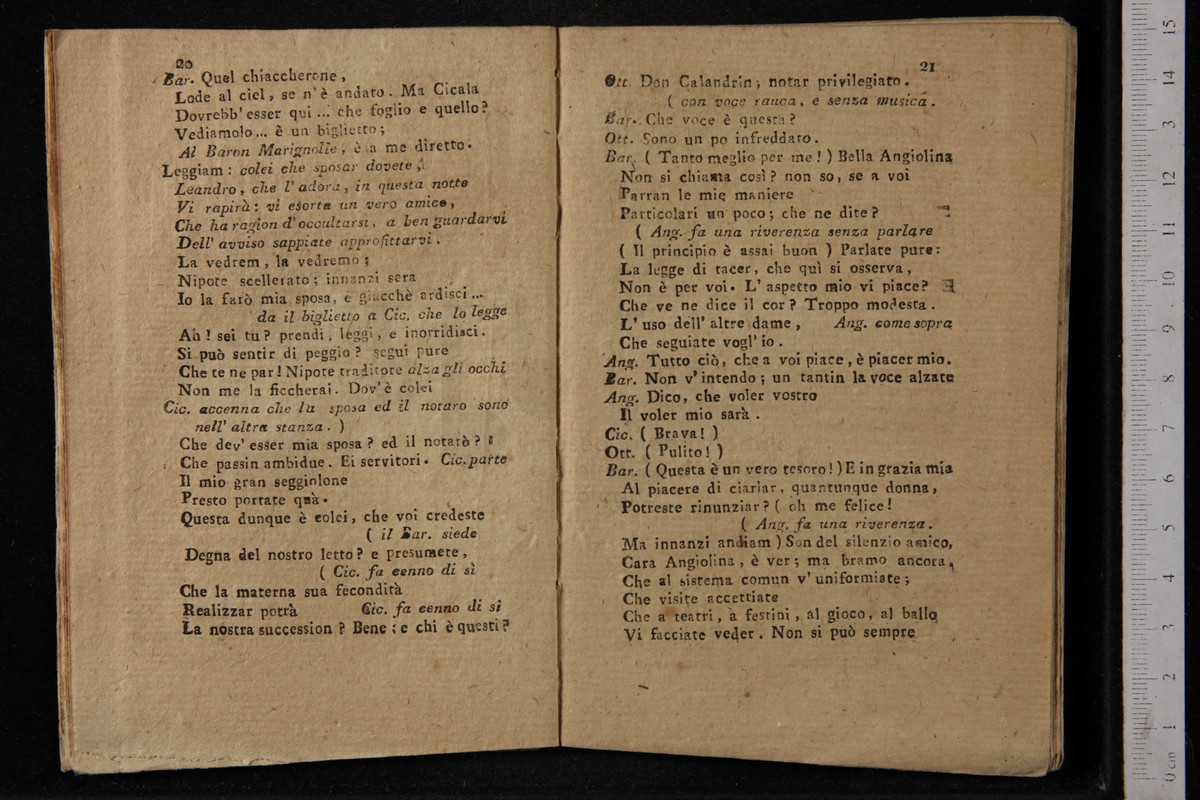 20
Bar. Quel chiaccherone,
Lode al ciel, se n'è andato. Ma Cicala
Dovrebb' esser qui ... che foglio e quello?
Vediamolo... è un biglietto;
Al Baron Marignolle, è a me diretto.
Leggiam: colei che sposar dovete,
Leandro, che l'adora, in questa notte
Vi rapirà: vi esorta un vero amico,
Che ha ragion d'occultarsi, a ben guardarvi
Dell' avviso sappiate approfittarvi.
La vedrem, la vedremo;
Nipote scellerato; innanzi sera
Io la farò mia sposa, e giacchè ardisci...
da il biglietto a Cic. che lo legge
Ah! sei tu? prendi, leggi, e inorridisci.
Si può sentir di peggio? segui pure
Che te ne par! Nipote traditore alza gli occhi
Non me la ficcherai. Dov'è colei
Cic. accenna che la sposa ed il notaro sono
nell' altra stanza. )
Che dev' esser mia sposa? ed il notarò?
Che passin ambidue. Ei servitori. Cic.parte
Il mio gran seggiolone
Presto portate quà.
Questa dunque è colei, che voi credeste
( il Bar. siede
Degna del nostro letto? e presumete,
( Cic. fa cenno di sì
Che la materna sua fecondità
Realizzar potrà Cic. fa cenno di si
La nostra succession? Bene; e chi è questi?
21
Ott. Don Calandrin; notar privilegiato.
( con voce rauca, e senza musica.
Bar. Che voce è questa?
Ott. Sono un po infreddato.
Bar. ( Tanto meglio per me! ) Bella Angiolina
Non si chiama così? non so, se a voi
Parran le mie maniere
Particolari un poco; che ne dite?
( Ang. fa una riverenza senza parlare
( Il principio è assai buon ) Parlate pure:
La legge di tacer, che quì si osserva,
Non è per voi. L' aspetto mio vi piace?
Che ve ne dice il cor? Troppo modesta.
L' uso dell' altre dame, Ang. come sopra
Che seguiate vogl' io.
Ang. Tutto ciò, che a voi piace, è piacer mio.
Bar. Non v' intendo; un tantin la voce alzate
Ang. Dico, che voler vostro
Il voler mio sarà.
Cic. ( Brava! )
Ott. ( Pulito! )
Bar. ( Questa è un vero tesoro! ) E in grazia mia
Al piacere di ciarlar, quantunque donna,
Potreste rinunziar? ( oh me felice!
( Ang. fa una riverenza.
Ma innanzi andiam ) Son del silenzio amico,
Cara Angiolina, è ver; ma bramo ancora,
Che al sistema comun v' uniformiate;
Che visite accettiate
Che a teatri, a festini, al gioco, al ballo
Vi facciate veder. Non si può sempre
15
14
13
12
11
10
9
8
7
6
5
4
3
2
1
0 cm